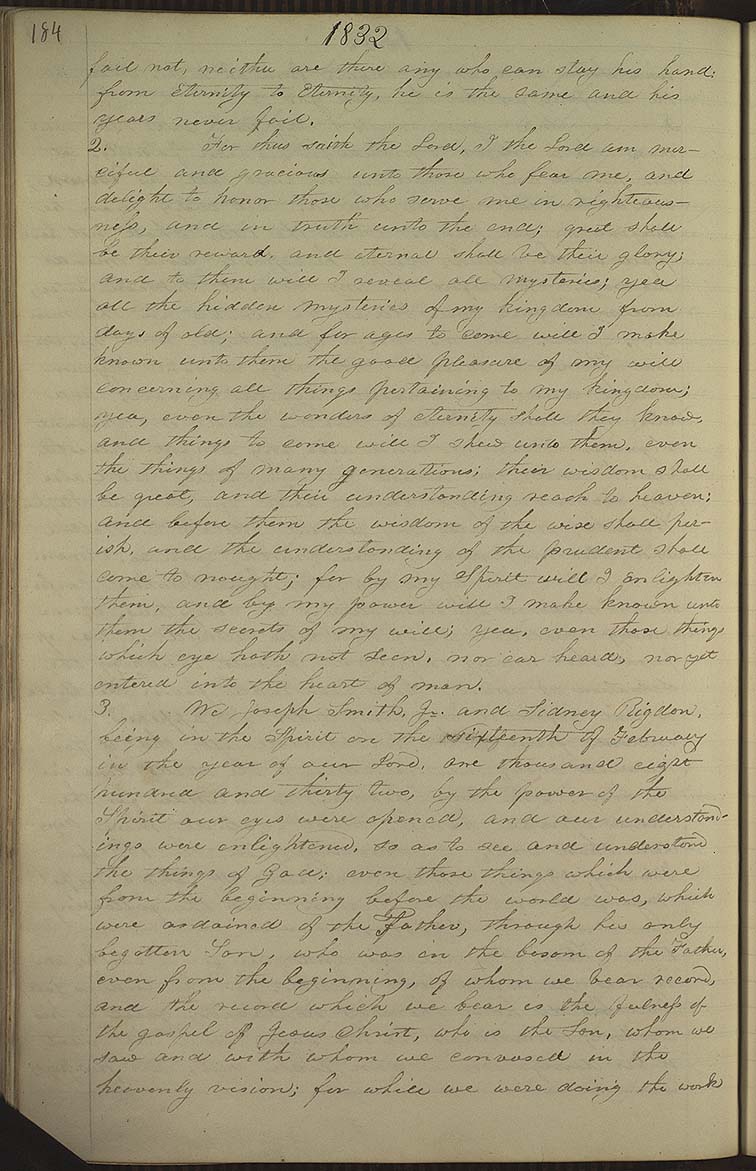 184
1832
fail not, neither are there any who can stay his hand;
from eternity to eternity, he is the same and his
years never fail.
2. For thus saith the Lord, I the Lord am mer-
ciful and gracious unto those who fear me, and
delight to honor those who serve me in righteous-
ness, and in truth unto the end; great shall
be their reward, and eternal shall be their glory;
and to them will I reveal all mysteries; yea
all the hidden mysteries of my kingdom from
days of old; and for ages to come will I make
known unto them the good pleasure of my will
concerning all things pertaining to my kingdom;
yea, even the wonders of eternity shall they know,
and things to come will I shew unto them, even
the things of many generations; their wisdom shall
be great, and their understanding reach to heaven;
and before them the wisdom of the wise shall per-
ish, and the understanding of the prudent shall
come to nought; for by my Spirit will I enlighten
them, and by my power will I make known unto
them the secrets of my will; yea, even those things
which eye hath not seen, nor ear heard, nor yet
entered into the heart of man.
3. We Joseph Smith, Jr. and Sidney Rigdon,
being in the Spirit on the sixteenth of February
in the year of our Lord, one thousand eight
hundred and thirty two, by the power of the
Spirit our eyes were opened, and our understand-
ings were enlightened, so as to see and understand
the things of God; even those things which were
from the beginning before the world was, which
were ordained of the Father, through his only
begotten Son, who was in the bosom of the Father,
even from the beginning, of whom we bear record,
and the record which we bear is the fulness of
the gospel of Jesus Christ, who is the Son, whom we
saw and with whom we conversed in the
heavenly vision; for while we were doing the work